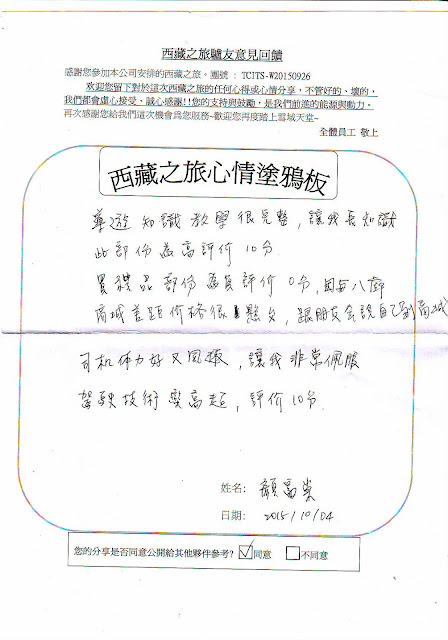 西藏之旅驢友意見回饋
感謝您參加本公司安排的西藏之旅。團號：TCITS-W20150926
歡迎您留下對於這次西藏之旅的任何心得或心情分享，不管好的、壞的，
我們都會虛心接受，誠心感謝!!您的支持與鼓勵，是我們前進的能源與動力。
再次感謝您給我們這次機會為您服務~歡迎您再度踏上雪域天堂~
全體員工 敬上
西藏之旅心情塗鴉板
導遊知識教學很完整，讓我長知識
此部份為高評价10分
買禮品部份為負評价0分，因与八廓
商城差距价格很懸女，跟朋友会說自己到商城
司机体力好又風趣，讓我非常佩服
駕駛技術與高超，評价10分.
姓名: 顏
日期: 2015/10/04
您的分享是否同意公開給其他夥伴參考? 同意 不同意